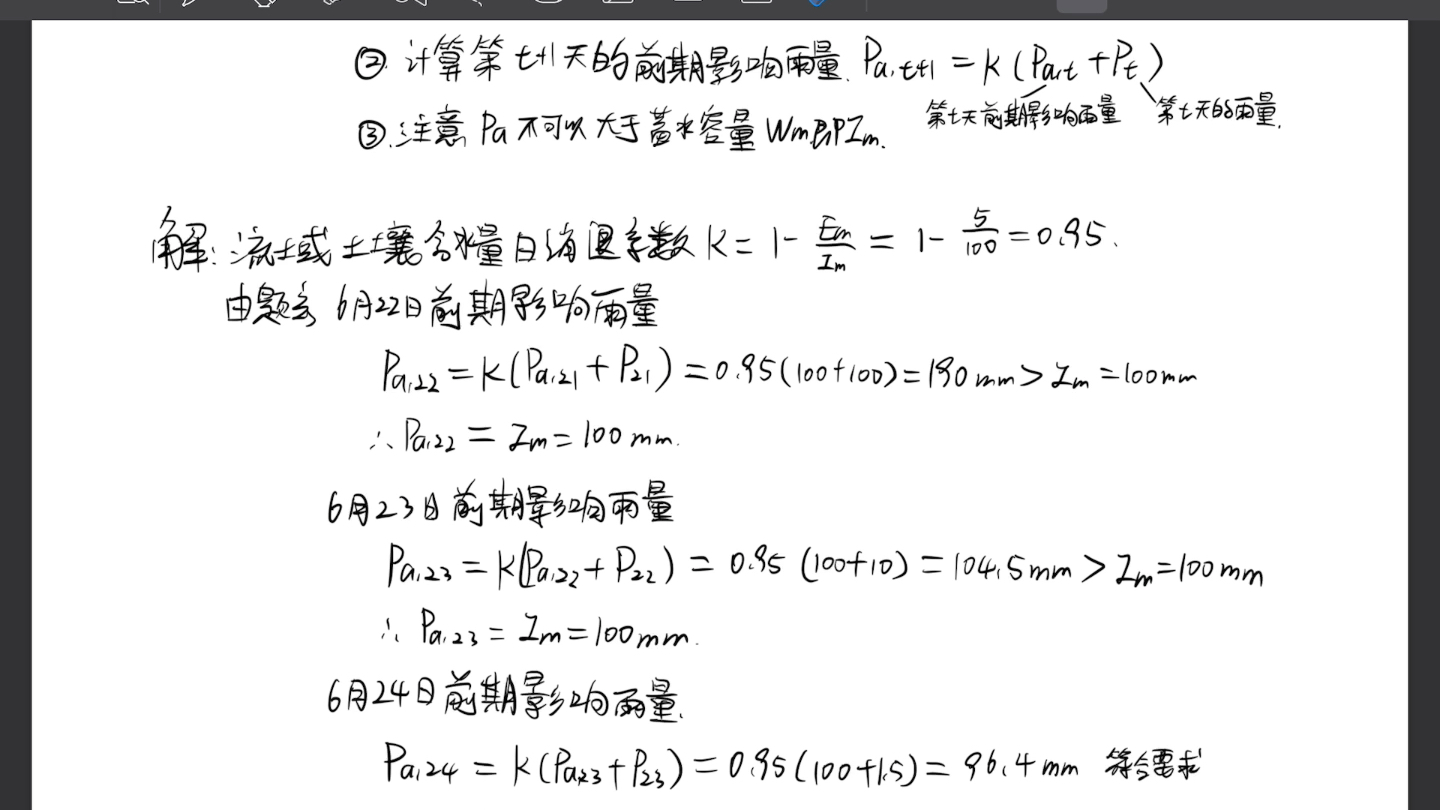 ② 计算第t+1天的前期影响雨量. Pa,t+1 = K (Pa,t + Pt)
第t天前期影响雨量 第t天的雨量.
③ 注意 Pa 不可以大于蓄水容量 Wm即Im.
解: 流域土壤含水量日消退系数 K = 1 - Em/Im = 1 - 5/100 = 0.95.
由题意 6月22日前期影响雨量
Pa,22 = K (Pa,21 + P21) = 0.95 (100+100) = 190 mm > Im = 100 mm
∴ Pa,22 = Im = 100 mm.
6月23日前期影响雨量
Pa,23 = K (Pa,22 + P22) = 0.95 (100+10) = 104.5 mm > Im = 100 mm
∴ Pa,23 = Im = 100 mm.
6月24日前期影响雨量.
Pa,24 = K (Pa,23 + P23) = 0.95 (100+1.5) = 96.4 mm 符合要求